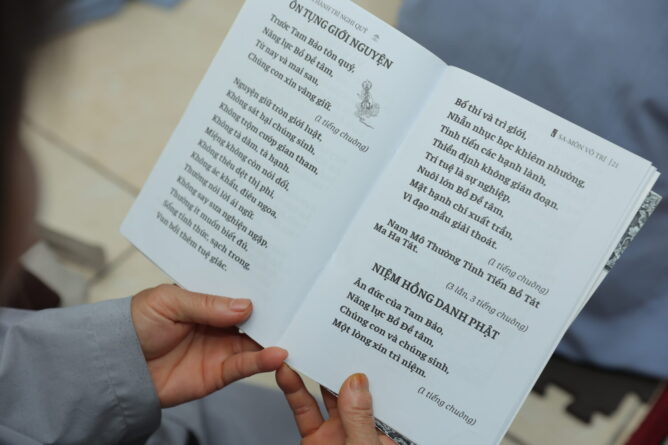 THÀNH TRÌ NGHI QUỸ
ÔN TỤNG GIỚI NGUYỆN
Trước Tam Bảo tôn quý,
Năng lực Bồ Đề tâm,
Từ nay và mai sau,
Chúng con xin vâng giữ.
(1 tiếng chuông)
Nguyện giữ tròn giới luật,
Không sát hại chúng sinh,
Không trộm cướp gian tham,
Không tà dâm, tà hạnh.
Miệng không còn nói dối,
Không thêu dệt thị phi,
Không ác khẩu, điêu ngoa,
Thường nói lời ái ngữ.
Không say sưa nghiện ngập.
Thường ít muốn biết đủ,
Sống tỉnh thức, sạch trong,
Vun bồi thêm tuệ giác.
SA-MÔN VÔ TRÍ | 21
Bố thí và trì giới,
Nhẫn nhục học khiêm nhường,
Tinh tiến các hạnh lành,
Thiền định không gián đoạn.
Trí tuệ là sự nghiệp,
Nuôi lớn Bồ Đề tâm,
Mật hạnh chí xuất trần,
Vì đạo mầu giải thoát.
(1 tiếng chuông)
Nam Mô Thường Tinh Tiến Bồ Tát
Ma Ha Tát.
(3 lần, 3 tiếng chuông)
NIỆM HỒNG DANH PHẬT
Ân đức của Tam Bảo,
Năng lực Bồ Đề tâm,
Chúng con và chúng sinh,
Một lòng xin trì niệm.
(1 tiếng chuông)